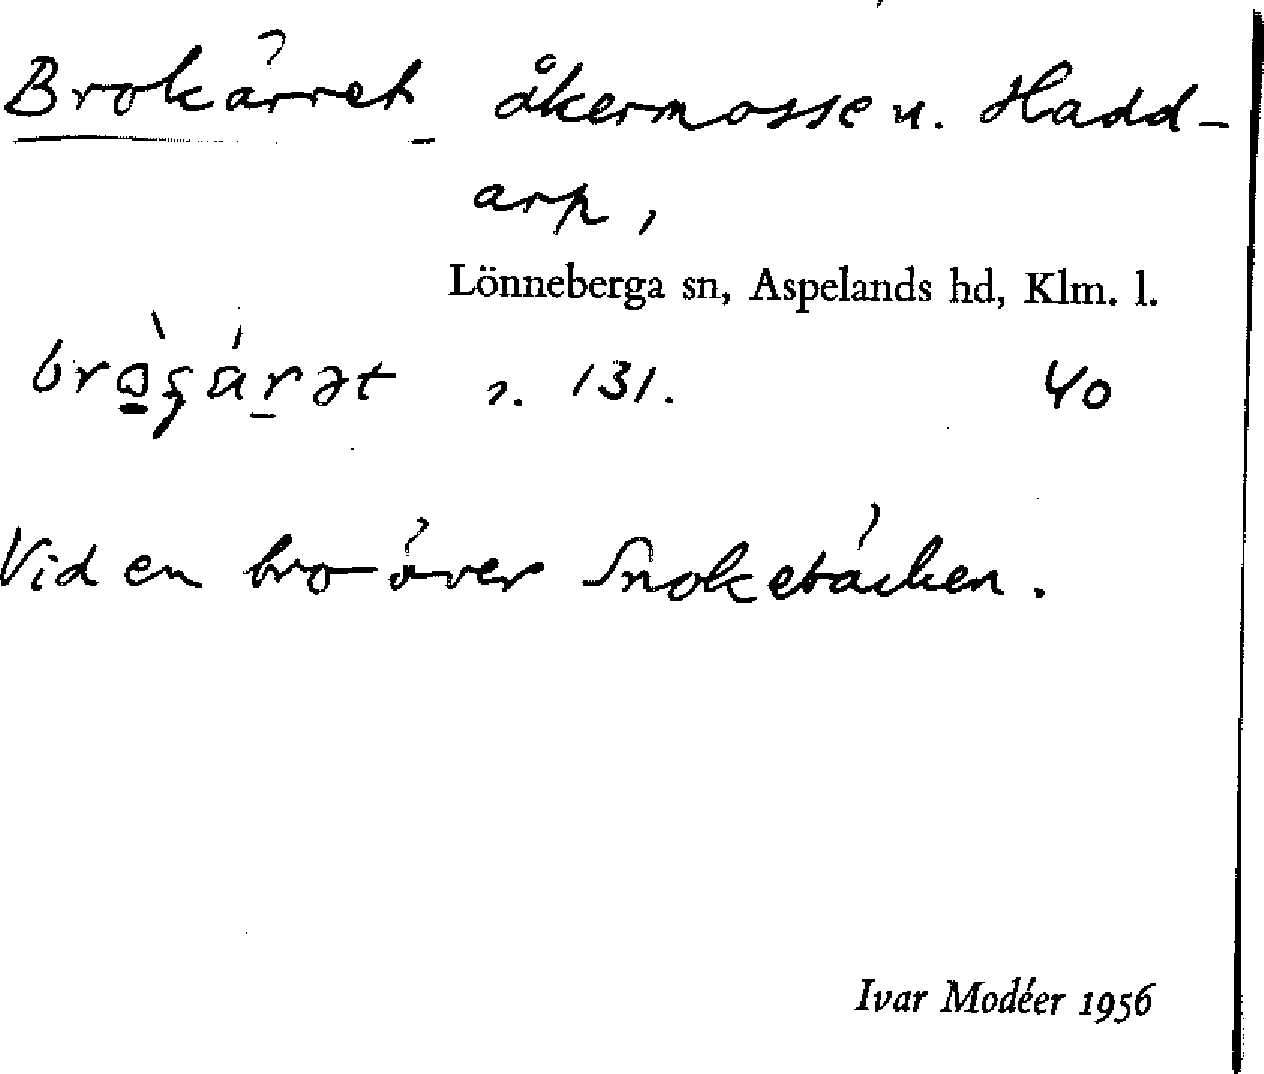 Brokärret åkermosse u. Hadd-
arp,
Lönneberga sn, Aspelands hd, Klm. l.
s. 131. 40
Vid en bro över Snokebäcken.
Ivar Modéer 1956